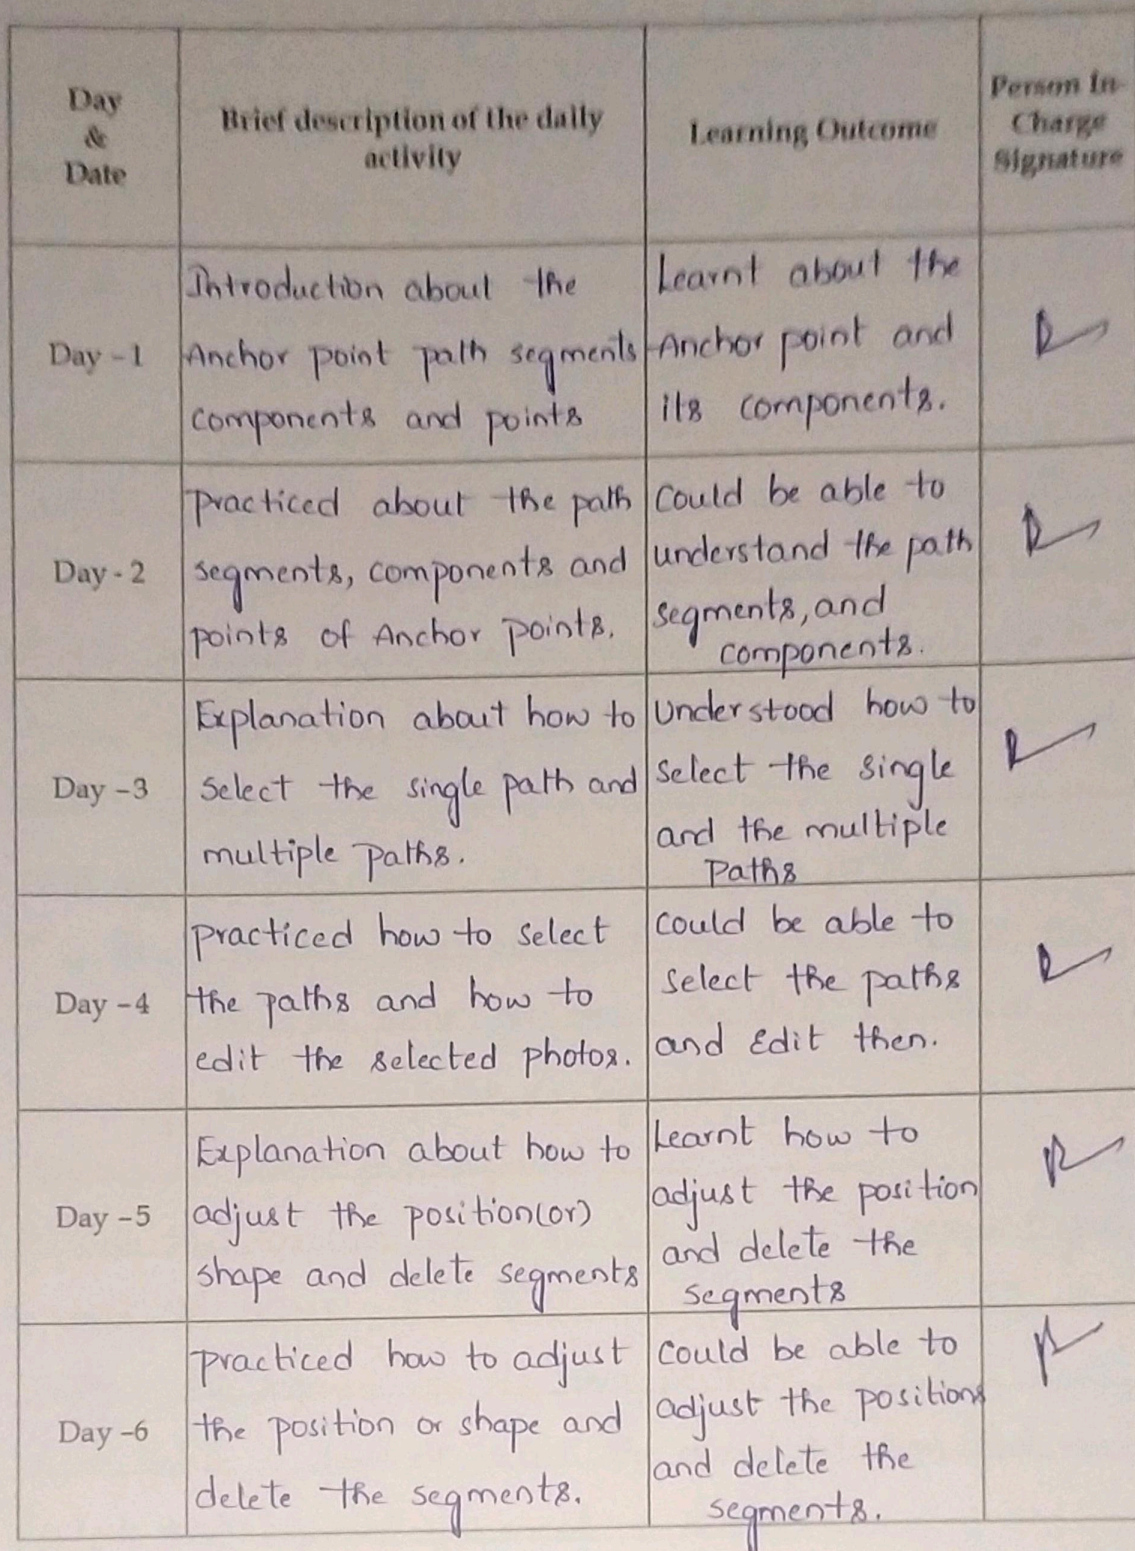 Day
&
Date
Brief description of the daily
activity
Learning Outcome
Person In-
Charge
Signature
Day - 1
Introduction about the
Anchor point path segments
components and points
Learnt about the
Anchor point and
its components.
Day - 2
Practiced about the path
segments, components and
points of Anchor points.
Could be able to
understand the path
segments, and
components.
Day - 3
Explanation about how to
select the single path and
multiple paths.
Understood how to
select the single
and the multiple
paths
Day - 4
practiced how to select
the paths and how to
edit the selected photos.
could be able to
select the paths
and Edit then.
Day - 5
Explanation about how to
adjust the position(or)
shape and delete segments
Learnt how to
adjust the position
and delete the
segments
Day - 6
practiced how to adjust
the position or shape and
delete the segments.
could be able to
adjust the positions
and delete the
segments.